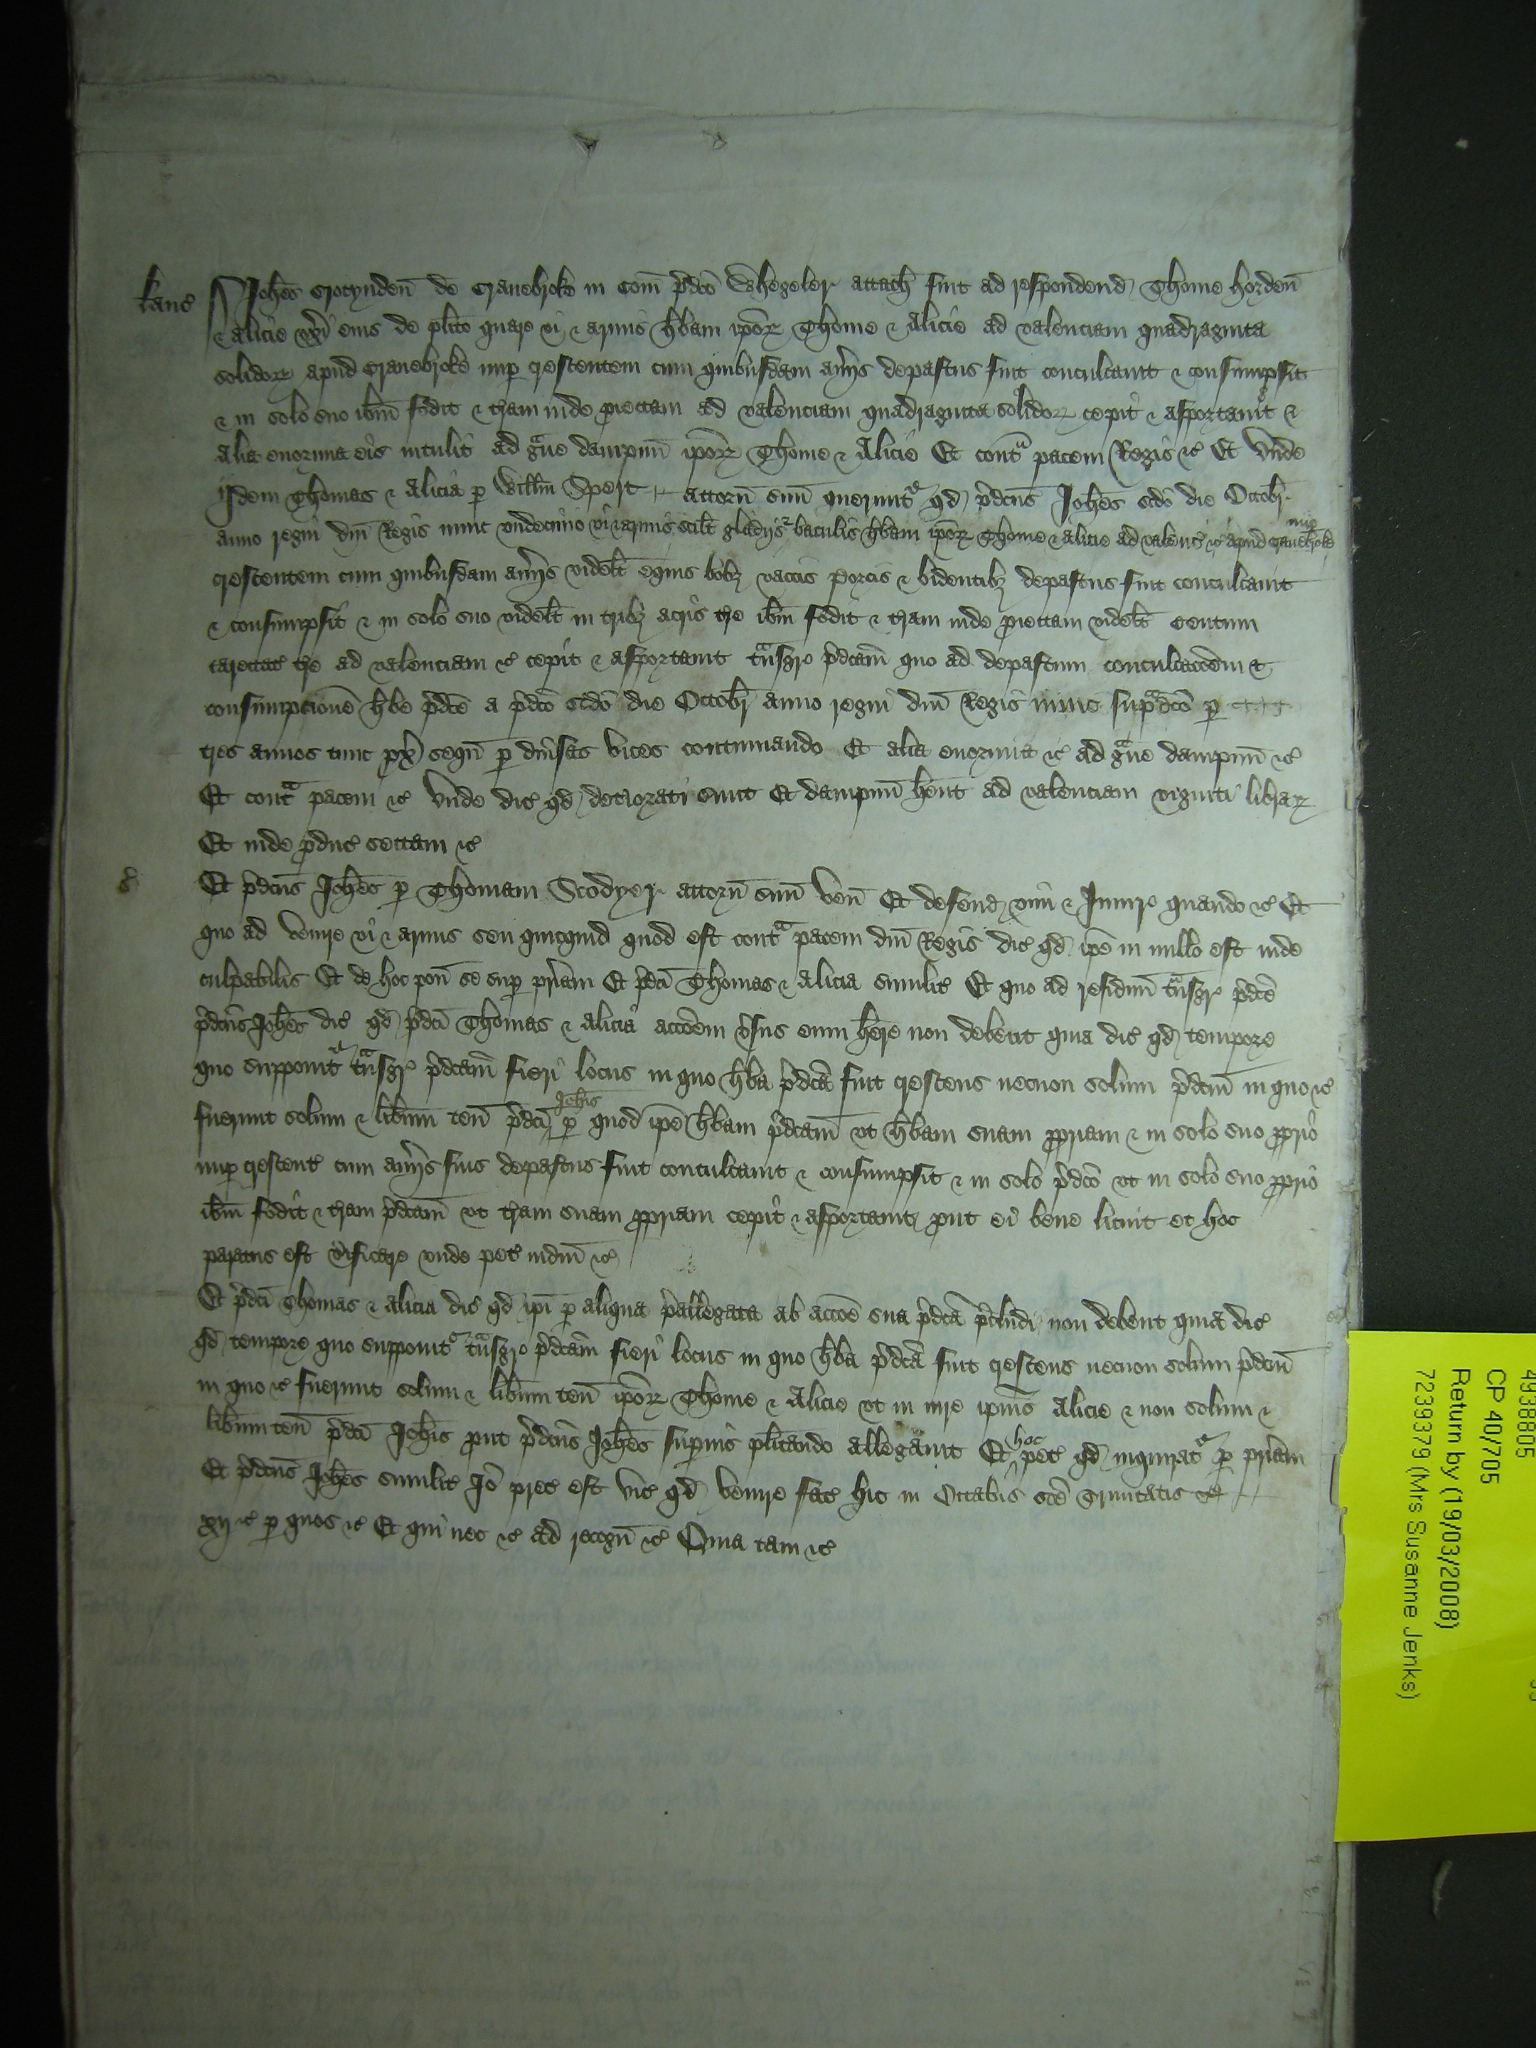 Kanc̄ Joħes Crotynden̄ de Cranebroke in Com̄ p̄dc̄o Whegeler attach fuit ad respondend Thome Horden̄
& Alicie ux̄i eius de pl̄ito quare vi & armis h̄bam ip̄oꝝ Thome & Alicie ad valenciam quadraginta
solidoꝝ apud Cranebroke nup̄ crescentem cum quibusdam aūijs depastus fuit conculcauit & consumpsit
& in solo suo ib̄m fodit & t̄ram inde proiectam ad valenciam quadraginta solidoꝝ cepit & asportauit &
Alia enormia eis intulit ad g̃ue dampnū ip̄oꝝ Thome & Alicie Et cont̃ pacem Regis &c̄ Et vnde
ijdem Thomas & Alicia p̲ Will̄m Spert attorn̄ suū querunt̃ qd p̄dcūs Joħes sc̄do die Octobr̄
anno regni dn̄i Regis nunc vndecimo vi & armis scil̄t gladijs baculis h̄bam ip̄oꝝ Thome & Alicie ad valenc̄ &c̄ apud Cranebroke nup̄
crescentem cum quibusdam aūijs videl̄t equis bobꝫ vaccis porcis & bidentibꝫ depastus fuit conculcauit
& consumpsit & in solo suo videl̄t in tribꝫ acris t̄re ib̄m fodit & t̄ram inde proiectam videl̄t centum
carectas t̄re ad valenciam &c̄ cepit & asportauit t̃nsgr̄ p̄dcām quo ad depastum conculcacōem &
consumpcionē h̄be p̄dcē a p̄dcō sc̄do die Octobr̄ anno regni dn̄i Regis nunc sup̃dcō p̲
tres annos tunc px̄ seqū p̲ diūsas vices continuando Et alia enormia &c̄ ad g̃ue dampnū &c̄
Et cont̃ pacem &c̄ Vnde dic̄ qd deteriorati sunt Et dampnū h̄ent ad valenciam viginti libraꝝ
Et inde produc̄ sectam &c̄
Et p̄dcūs Joħes p̲ Thomam Scodyer attorn̄ suū ven̄ Et defend vim & Iniur̄ quando &c̄ Et
quo ad venire vi & armis seu quicquid quod est cont̃ pacem dn̄i Regis dic̄ qd ip̄e in nullo est inde
culpabilis Et de hoc pon̄ se sup̲ p̄riam Et p̄dcī Thomas & Alicia similit̄ Et quo ad residuū t̃nsgr̄ p̄dcē
p̄dcūs Joħes dic̄ qd p̄dcī Thomas & Alicia accōem v̄sus eum h̄ere non debent quia dic̄ qd tempore
quo supponit̃ t̃nsgr̄ p̄dcām fieri locus in quo h̄ba p̄dcā fuit crescens necnon solum p̄dcūm in quo &c̄
fuerunt solum & lib̄um ten̄ p̄dcī Joħis p̲ quod ip̄e h̄bam p̄dcām vt h̄bam suam propriam & in solo suo proprio
nup̄ crescent̄ cum aūijs suis depastus fuit conculcauit & consumpsit & in solo p̄dcō vt in solo suo proprio
ib̄m fodit & t̄ram p̄dcām vt t̄ram suam propriam cepit & asportauit prout ei bene licuit et hoc
paratus est v̄ificare vnde pet̄ iudm̄ &c̄
Et p̄dcī Thomas & Alicia dic̄ qd ip̄i p̲ aliqua p̄allegata ab accōe sua p̄dcā p̄cludi non debent quia dic̄
qd tempore quo supponit̃ t̃nsgr̄ p̄dcām fieri locus in quo h̄ba p̄dcā fuit crescens necnon solum p̄dcūm
in quo &c̄ fuerunt solum & lib̄um ten̄ ip̄oꝝ Thome & Alicie vt in iure ipius Alicie & non solum &
lib̄um ten̄ p̄dcī Joħis prout p̄dcūs Joħes sup̲ius pl̄itando allegauit Et hoc pet̄ qd inquirat̃ p̲ p̄riam
Et p̄dcūs Joħes similit̄ Jō prec̄ est vic̄ qd venire fac̄ hic in Octabis sc̄e Trinitatis
xij &c̄ p̲ quos &c̄ Et qui nec &c̄ ad recogn̄ &c̄ Quia tam &c̄
4938805
CP 40/705
Return by (19/03/2008)
7239379 (Mrs Susanne Jenks)